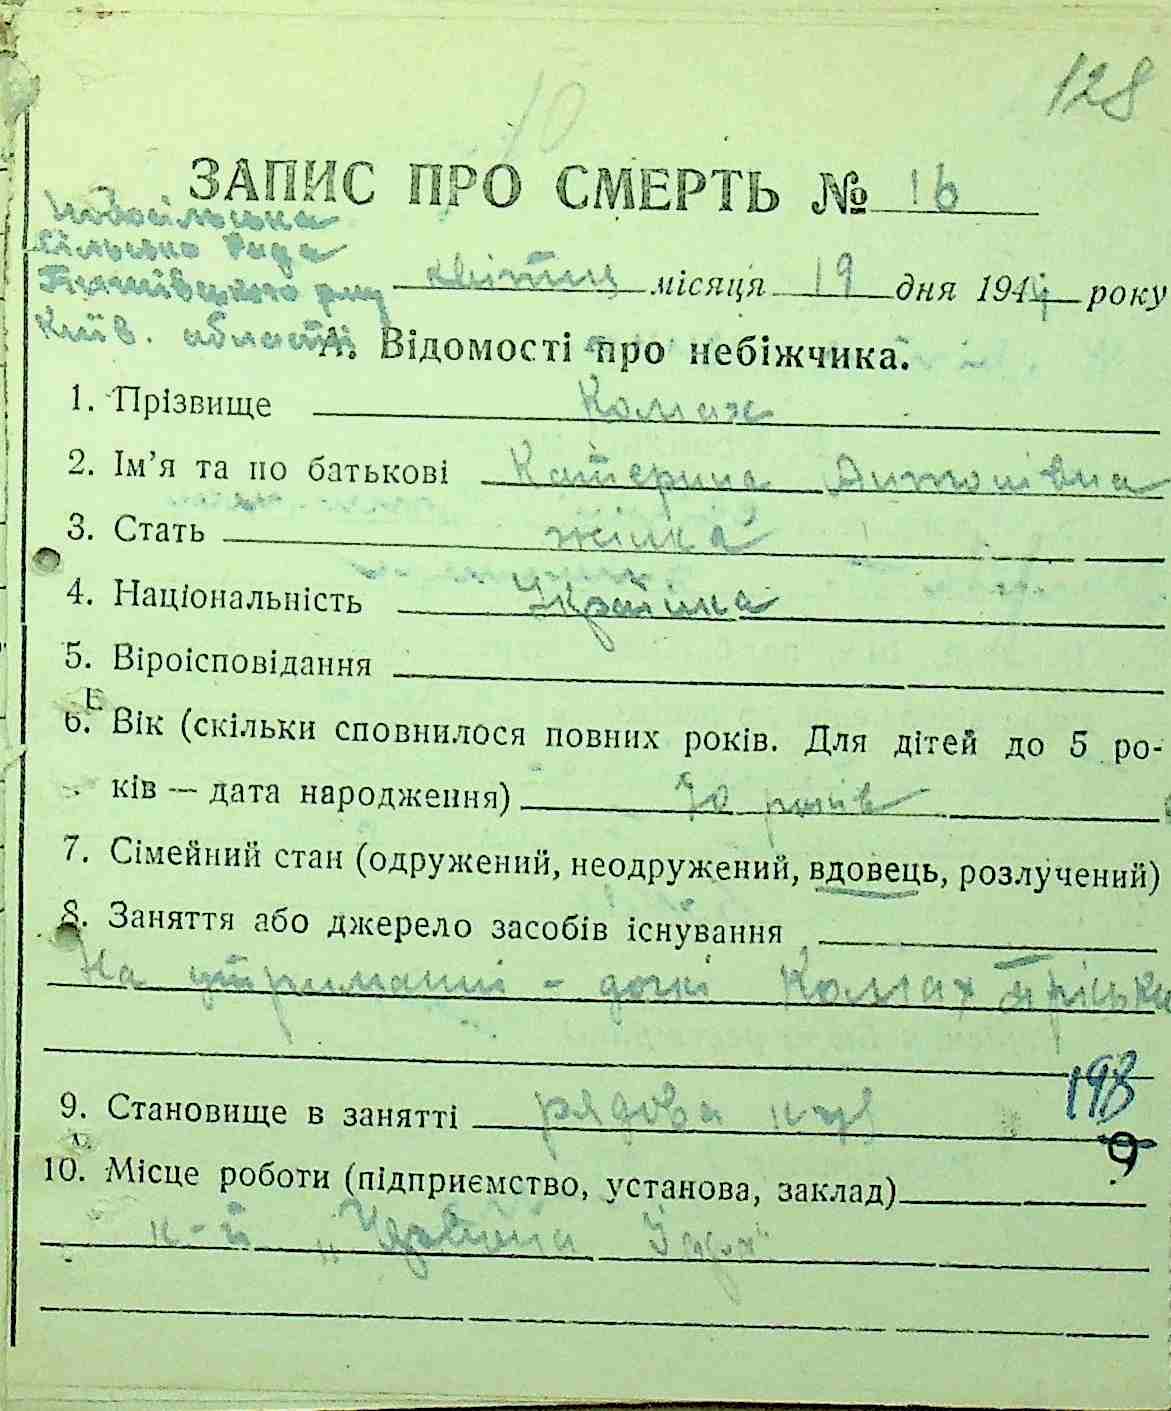 128
ЗАПИС ПРО СМЕРТЬ № 16
Новосільська
сільська Рада
Київ. області
квітня місяця 19 дня 1944 року
А. Відомості про небіжчика.
1. Прізвище Комах
2. Ім’я та по батькові Катерина Антонівна
3. Стать жінка
4. Національність Українка
5. Віроісповідання
6. Вік (скільки сповнилося повних років. Для дітей до 5 ро-
ків — дата народження) 70 років
7. Сімейний стан (одружений, неодружений, вдовець, розлучений)
8. Заняття або джерело засобів існування
На утриманні - дочкі Комах Пріськи
198
9. Становище в занятті рядова
9
10. Місце роботи (підприємство, установа, заклад)
к-п „Червона